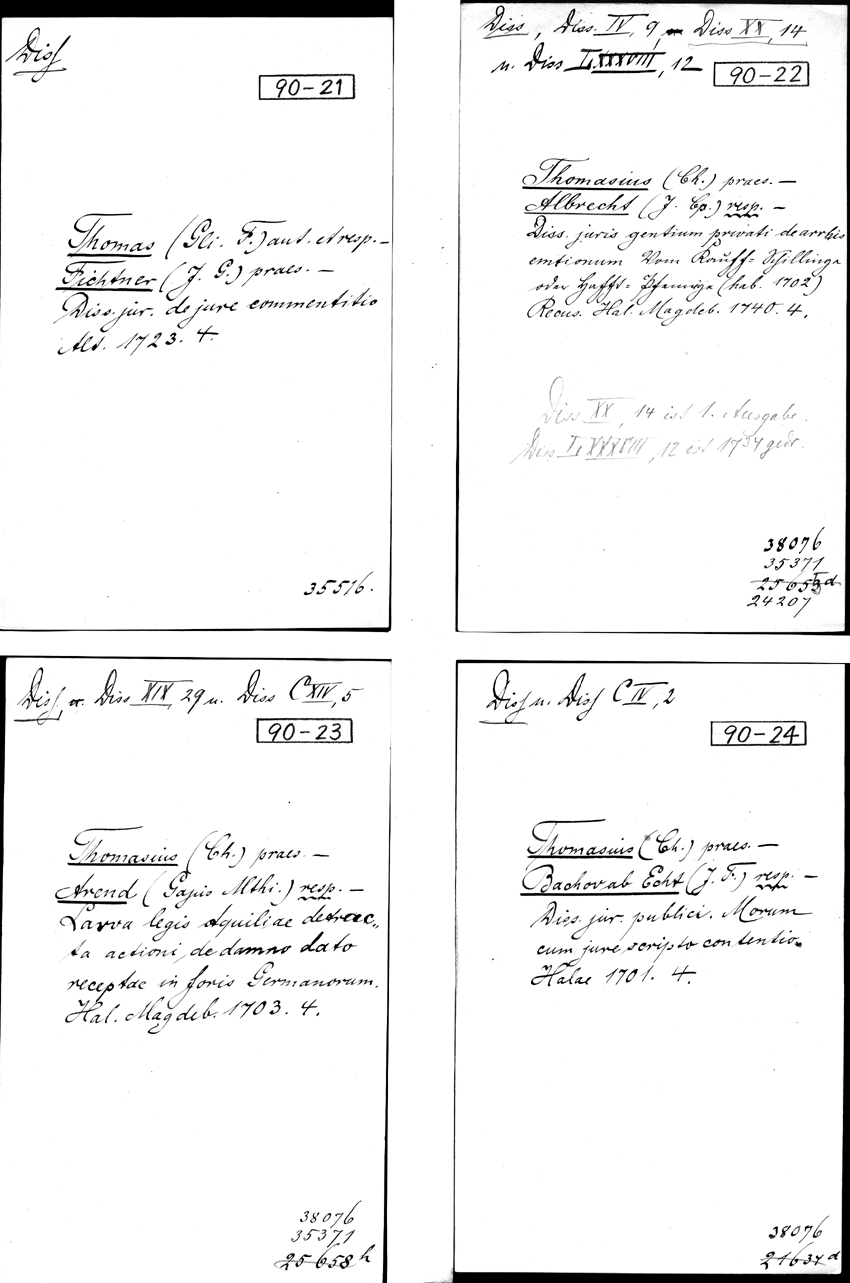 Diss
90-21
Thomas (Gli. F.) aut. et resp. —
Fichtner (J. G.) praes. —
Diss. jur. de jure commentitio
Alt. 1723. 4.
35516.
Diss, Diss. IV, 9, Diss XX, 14
u. Diss LXXXVIII, 12
90-22
Thomasius (Ch.) praes. —
Albrecht (J. Cp.) resp. —
Diss. juris gentium privati de arrhis
emtionum Vom Kauff-Schillinge
oder Hafft-Pfennige (hab. 1702)
Recus. Hal. Magdeb. 1740. 4.
Diss XX, 14 ist 1. Ausgabe.
Diss LXXXVIII, 12 ist 1734 gedr.
38076
35371
24207
Diss, Diss XIX, 29 u. Diss CXIV, 5
90-23
Thomasius (Ch.) praes. —
Arend (Gajus Mthi.) resp. —
Larva legis Aquiliae detrac„
ta actioni, de damno dato
receptae in foris Germanorum.
Hal. Magdeb. 1703. 4.
38076
35371
25658 h
Diss u. Diss CIV, 2
90-24
Thomasius (Ch.) praes. —
Bachov ab Echt (J. F.) resp. —
Diss. jur. publici. Morum
cum jure scripto contentio.
Halae 1701. 4.
38076
21634 d